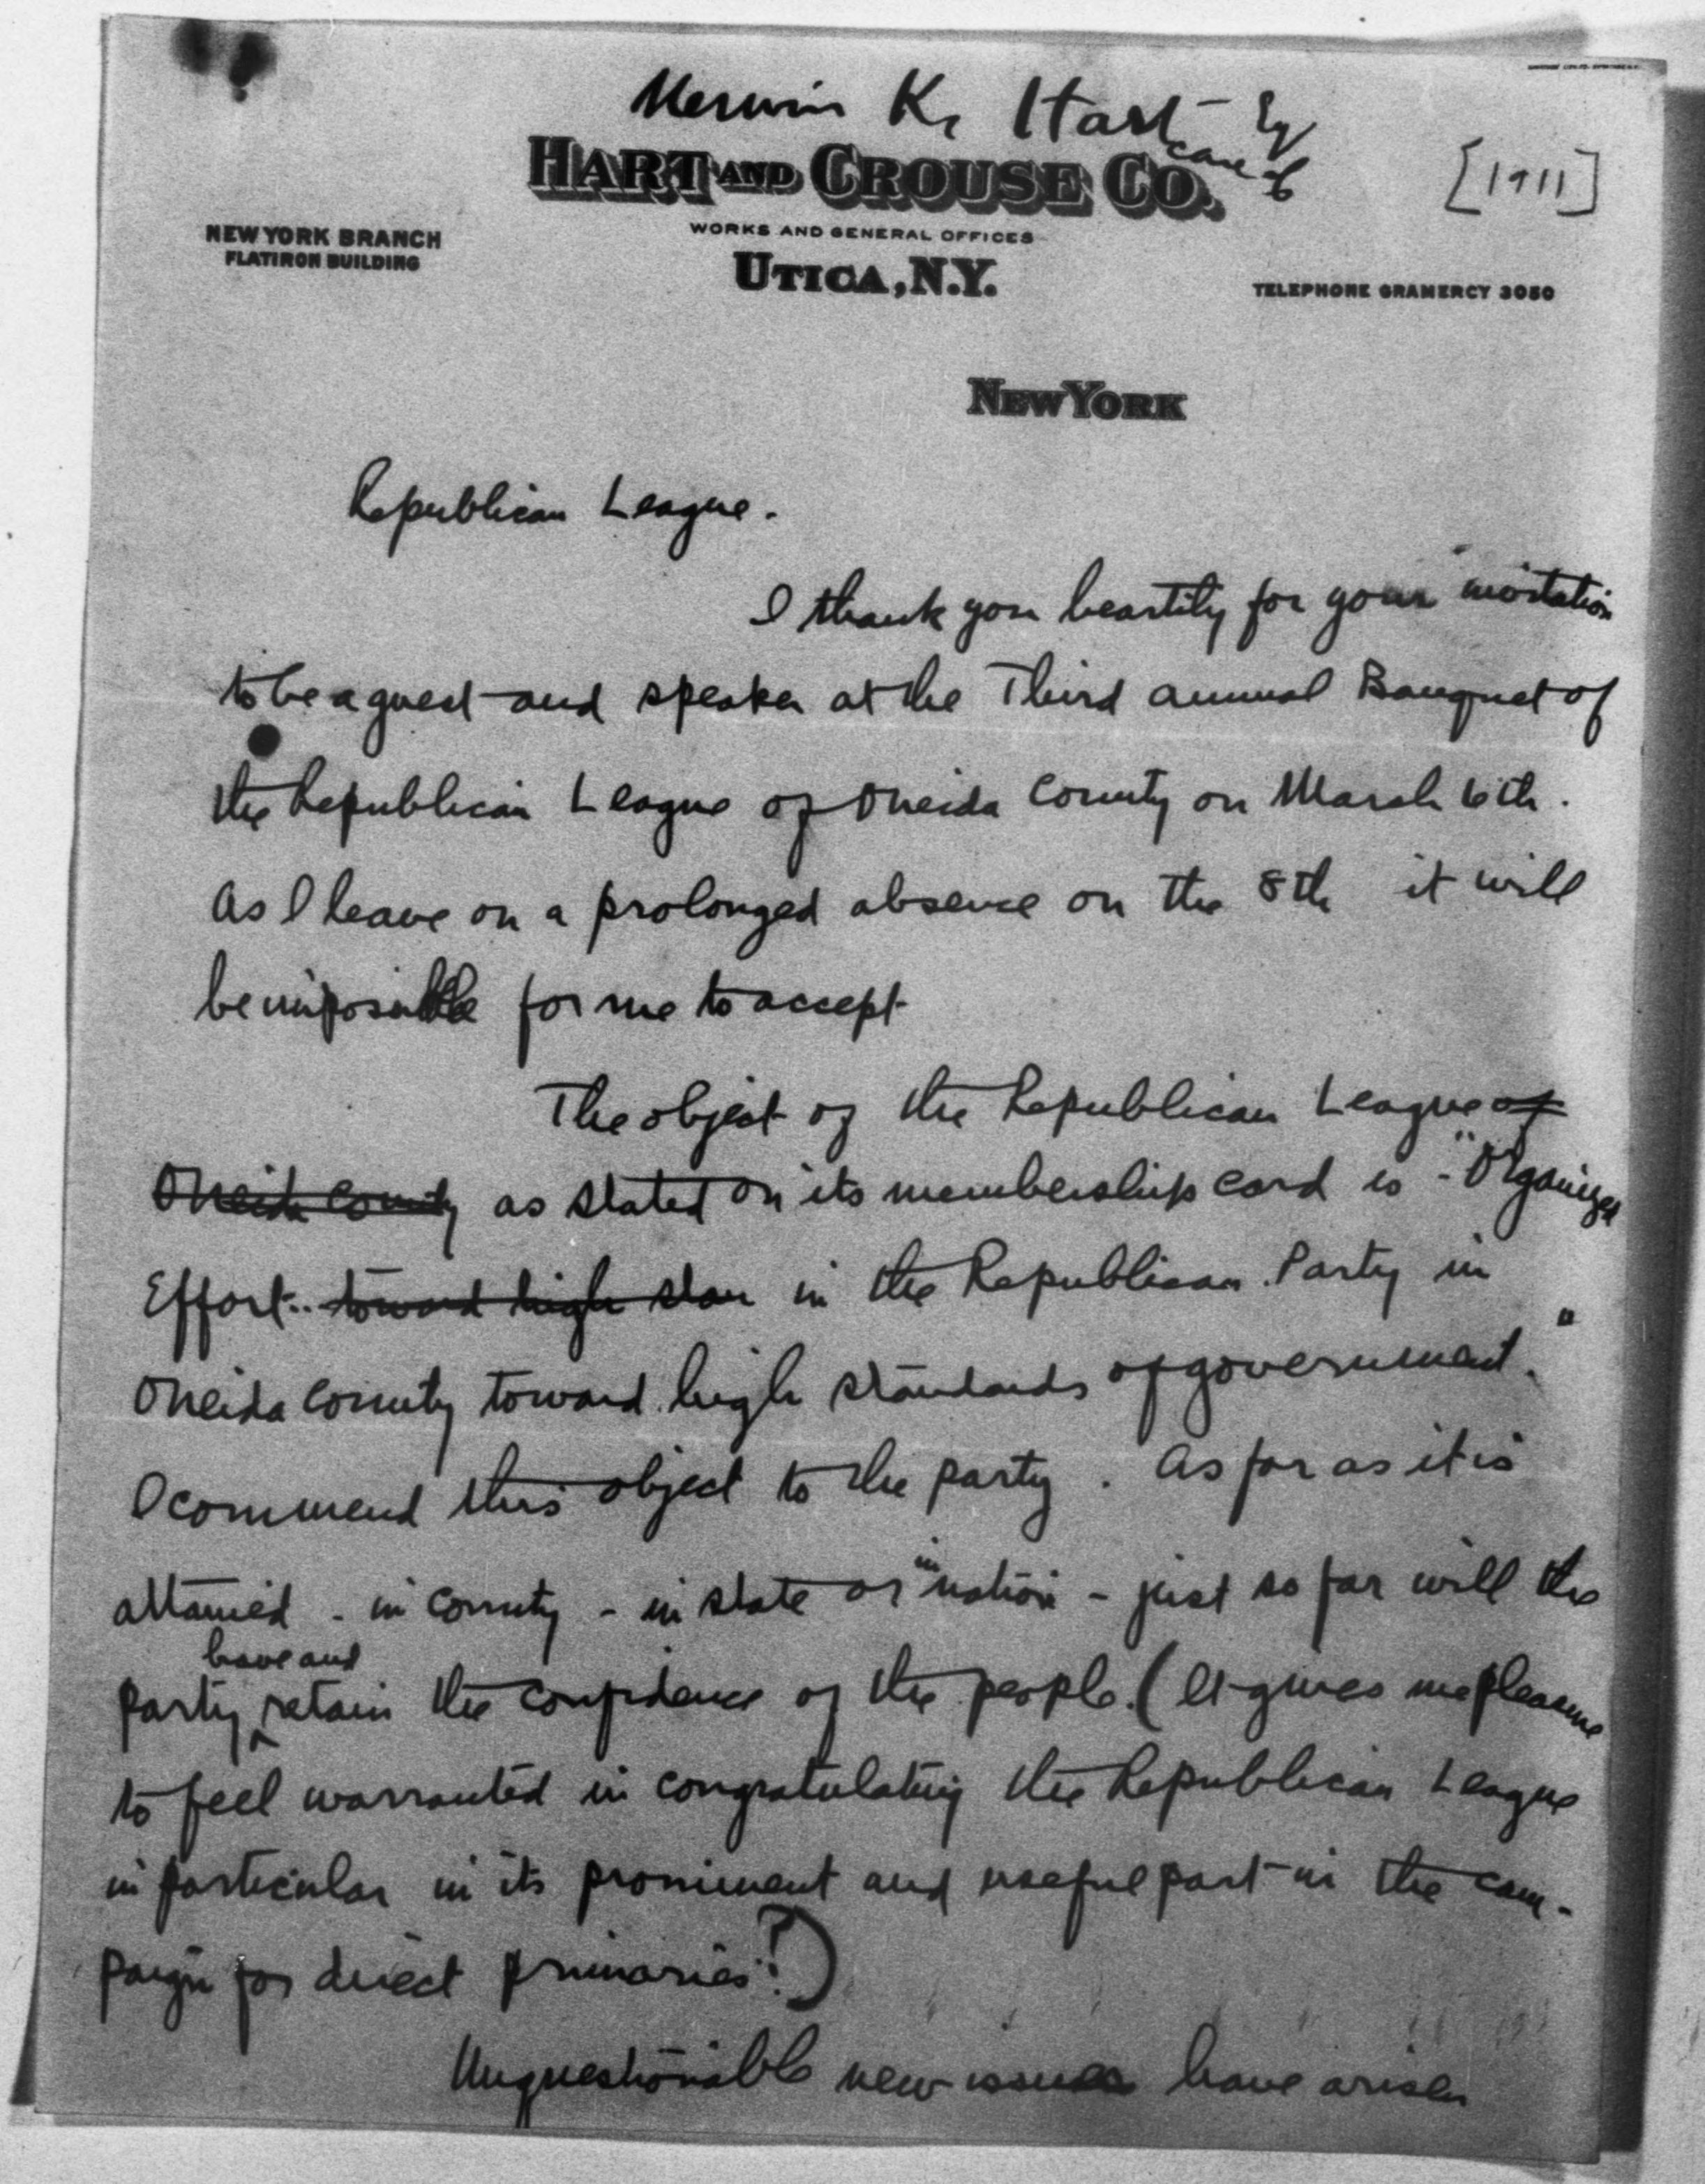 Merwin K. Hart - Esq
care of
HART AND CROUSE CO.
[1911]
WORKS AND GENERAL OFFICES
NEW YORK BRANCH
FLATIRON BUILDING
UTICA, N.Y.
TELEPHONE GRAMERCY 3050
NEW YORK
Republican League.
I thank you heartily for your invitation
to be a guest and speaker at the Third annual Banquet of
the Republican League of Oneida County on March 6th.
As I leave on a prolonged absence on the 8th it will
be impossible for me to accept
The object of the Republican League of
Oneida County as stated on its membership card is - "Organized
Effort.. toward high stan in the Republican Party in
Oneida County toward high standards of government."
I commend this object to the party. As far as it is
attained - in county - in state or in nation - just so far will the
have and
party retain the confidence of the people. (It gives me pleasure
to feel warranted in congratulating the Republican League
in particular in its prominent and useful part in the cam-
paign for direct primaries?)
Unquestionable new issues have arisen